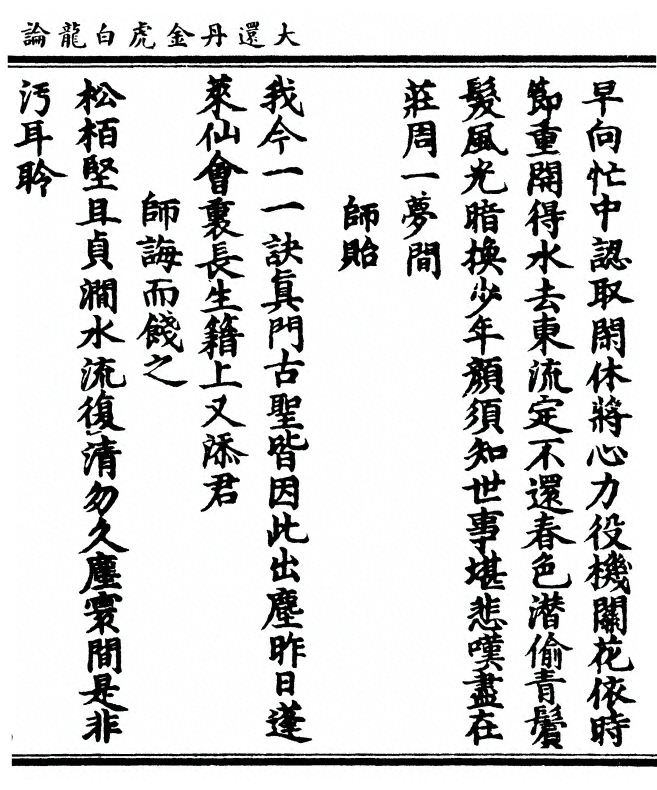 大還丹金虎白龍論
早向忙中認取閑休將心力役機關花依時
節重開得水去東流定不還春色潛偷青鬢
髮風光暗換少年顏須知世事堪悲嘆盡在
莊周一夢間
師貽
我今一一訣眞門古聖皆因此出塵昨日蓬
萊仙會裏長生籍上又添君
師誨而餞之
松栢堅且貞澗水流復清勿久塵寰間是非
汚耳聆